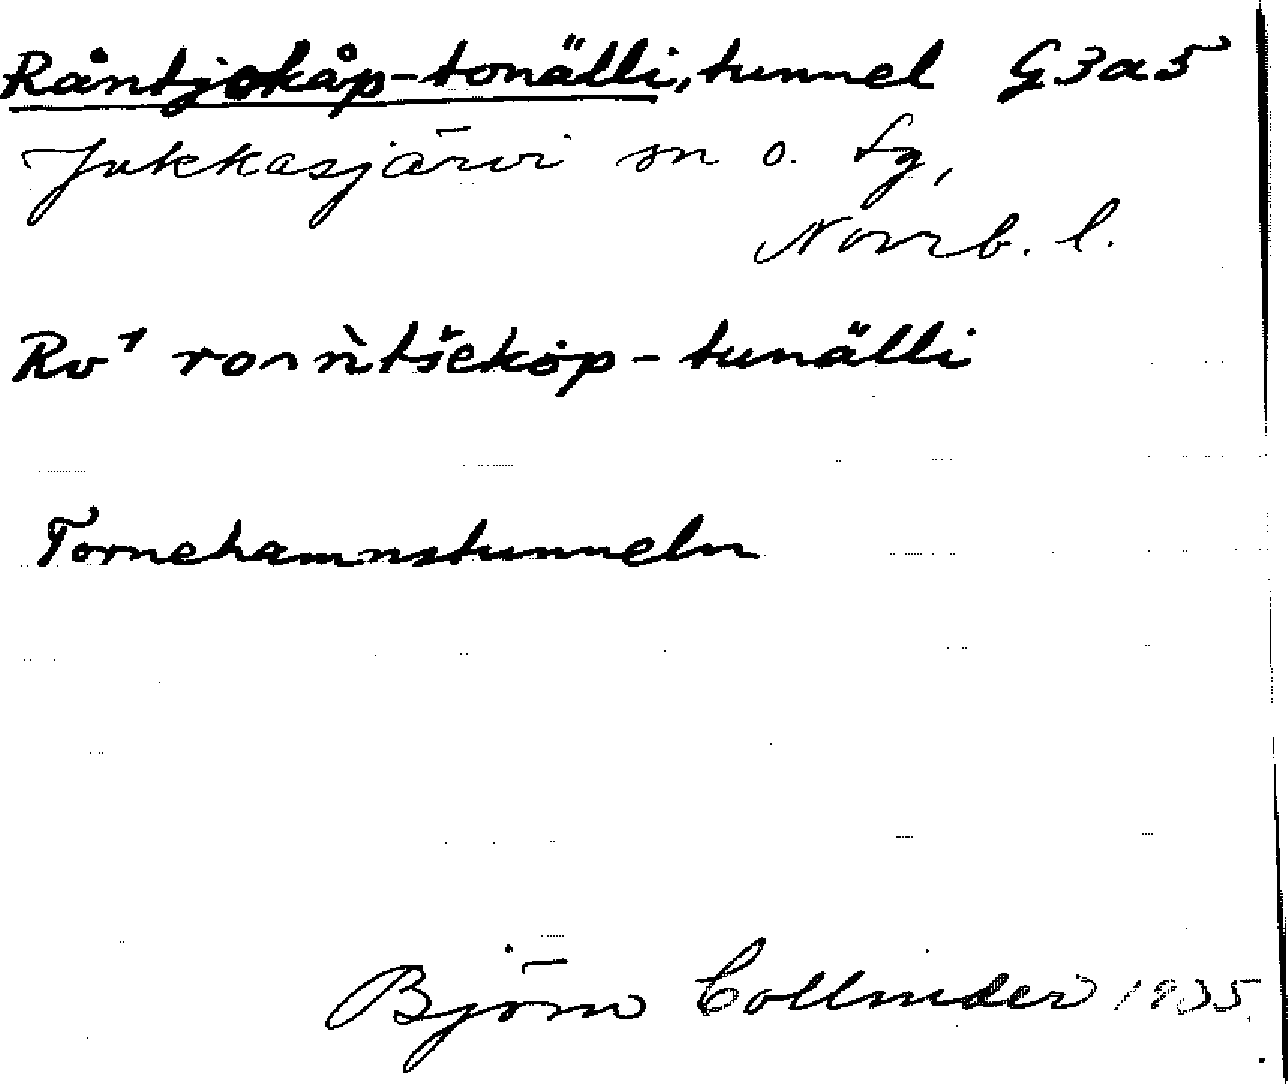 Råntjokåp-tonälli, tunnel G3a5
Jukkasjärvi sn o. tg,
Norrb. l.
Rv¹ ronǹtšekȯp-tunälli
Tornehamnstunneln
Björn Collinder 1935.